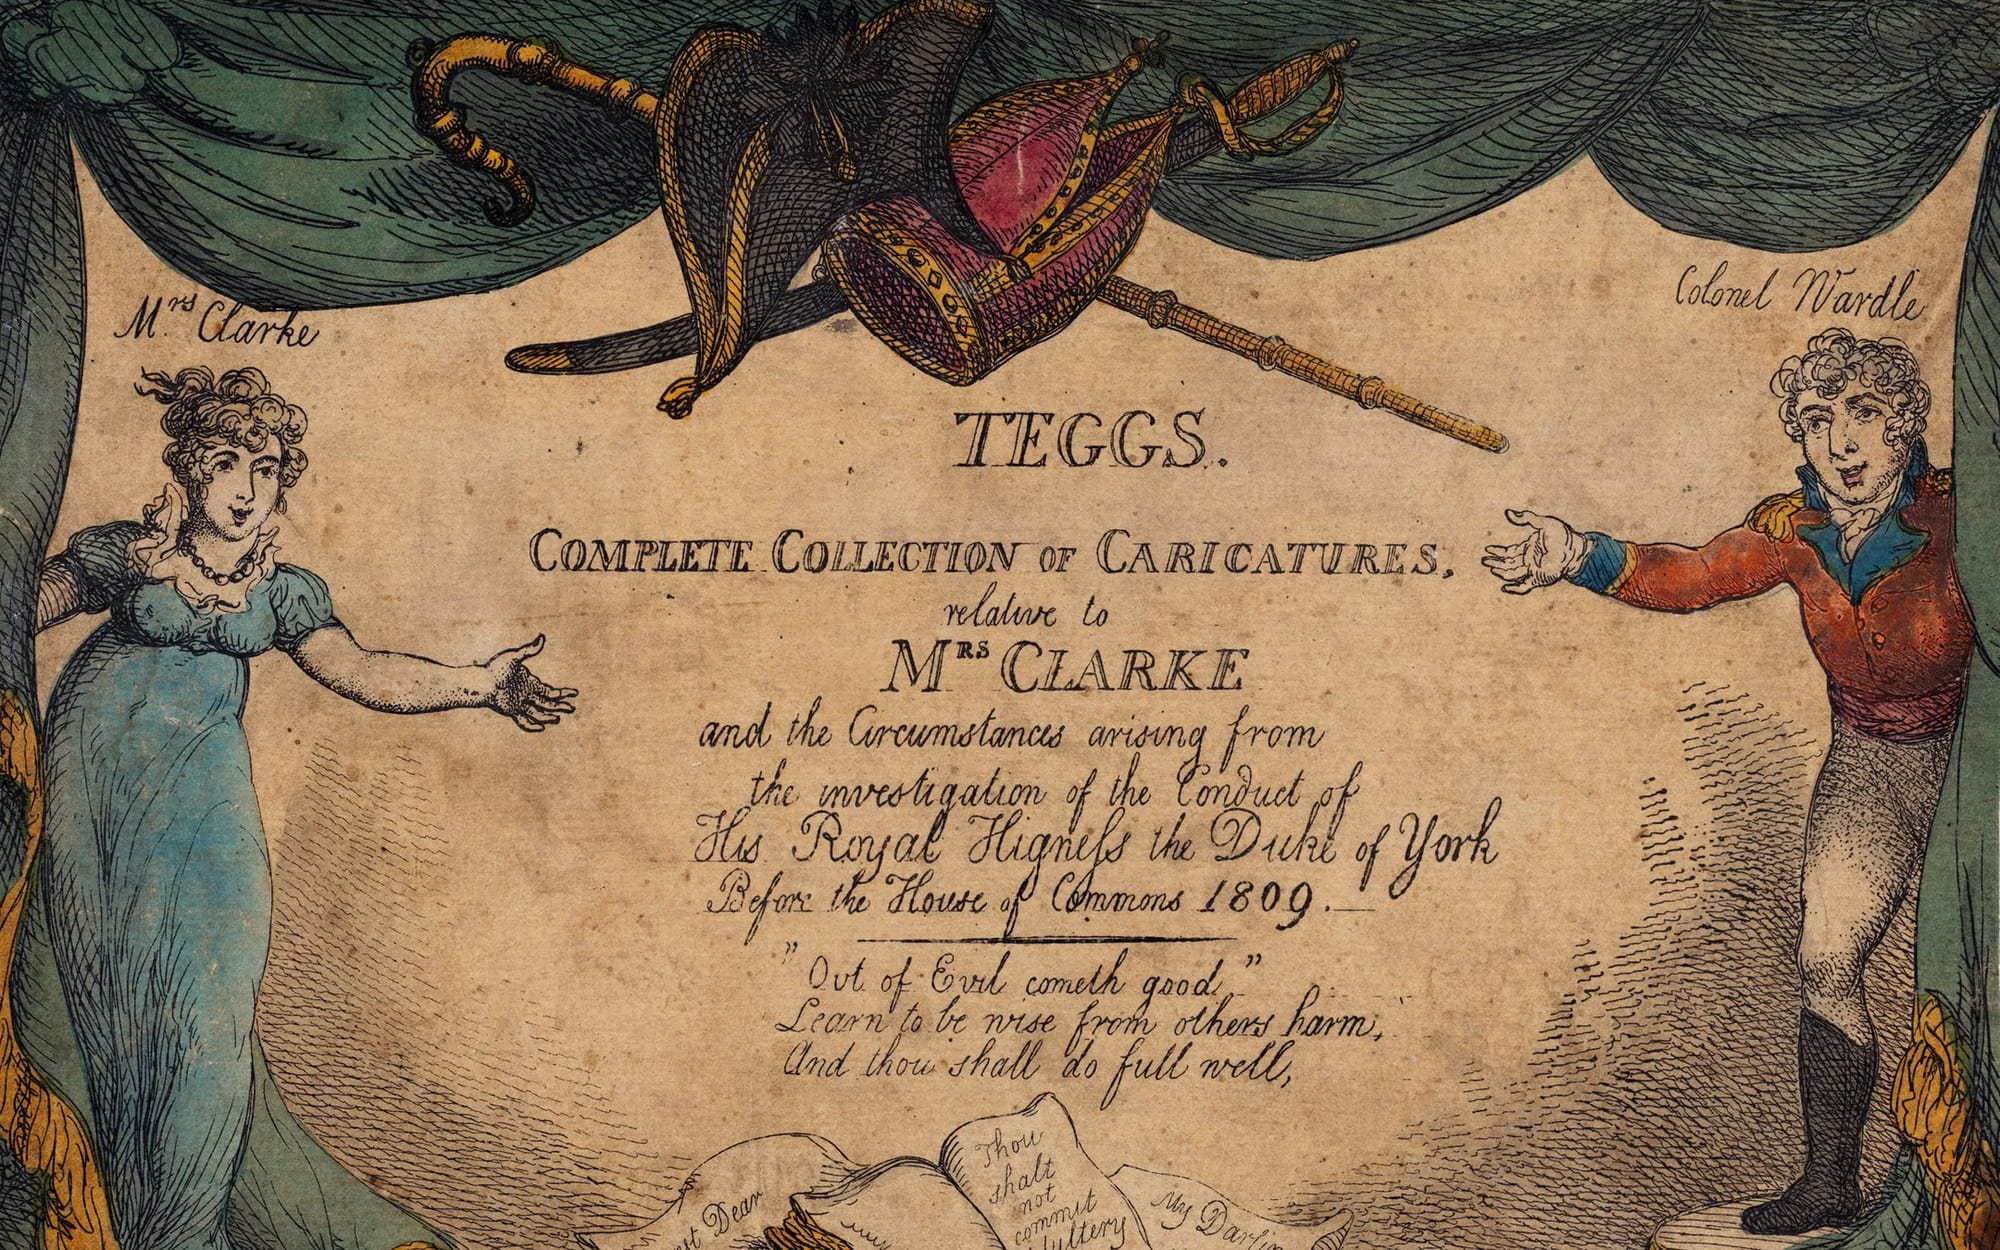 Mrs Clarke
Colonel Wardle
TEGGS.
COMPLETE COLLECTION OF CARICATURES,
relative to
MRS CLARKE
and the Circumstances arising from
the investigation of the Conduct of
His Royal Higneſs the Duke of York
Before the House of Commons 1809.—
"Out of Evil cometh good"
Learn to be wise from others harm,
And thou shall do full well,
Dear
Thou
shalt
not
commit
My Darlin